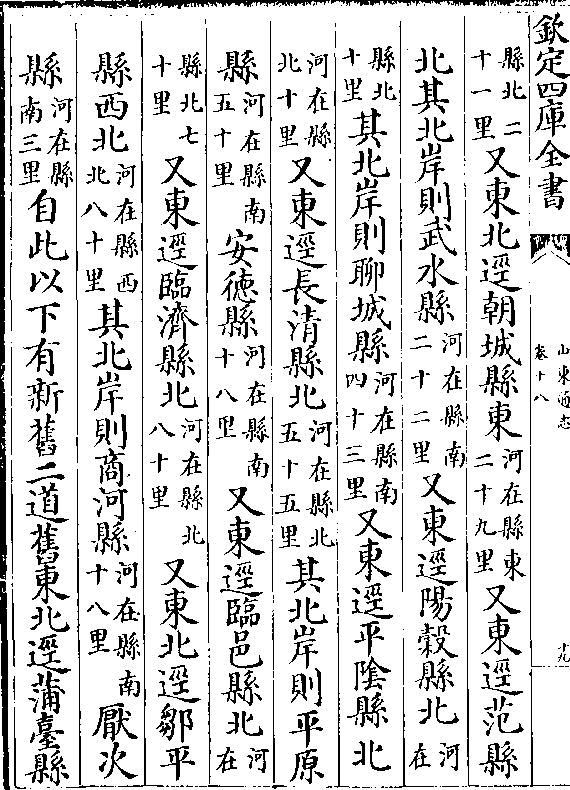 欽定四庫全書
山東通志
卷十八
十九
縣北二十一里又東北逕朝城縣東河在縣東二十九里又東逕范縣
北其北岸則武水縣河在縣南二十二里又東逕陽穀縣北河在
縣北十里其北岸則聊城縣河在縣南四十三里又東逕平陰縣北
河在縣北十里又東逕長清縣北河在縣北五十五里其北岸則平原
縣河在縣南五十里安徳縣河在縣南十八里又東逕臨邑縣北河在
縣北七十里又東逕臨濟縣北河在縣北八十里又東北逕鄒平
縣西北河在縣西北八十里其北岸則商河縣河在縣南十八里厭次
縣河在縣南三里自此以下有新舊二道舊東北逕蒲臺縣